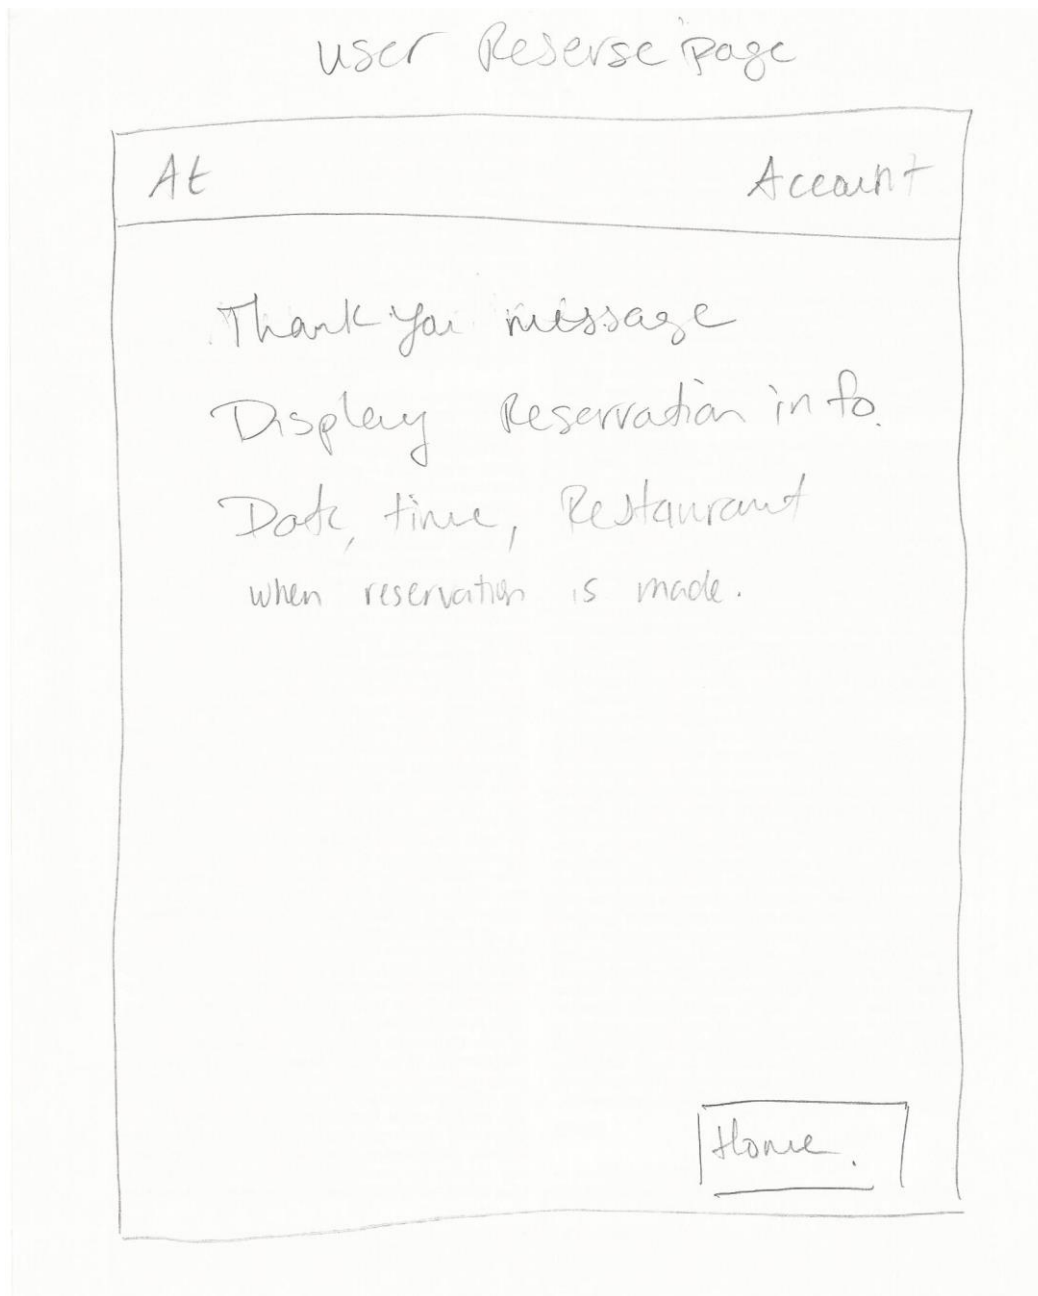 user Reserse page
At Account
Thank you message
Display Reservation info.
Date, time, Restaurant
when reservation is made.
Home.